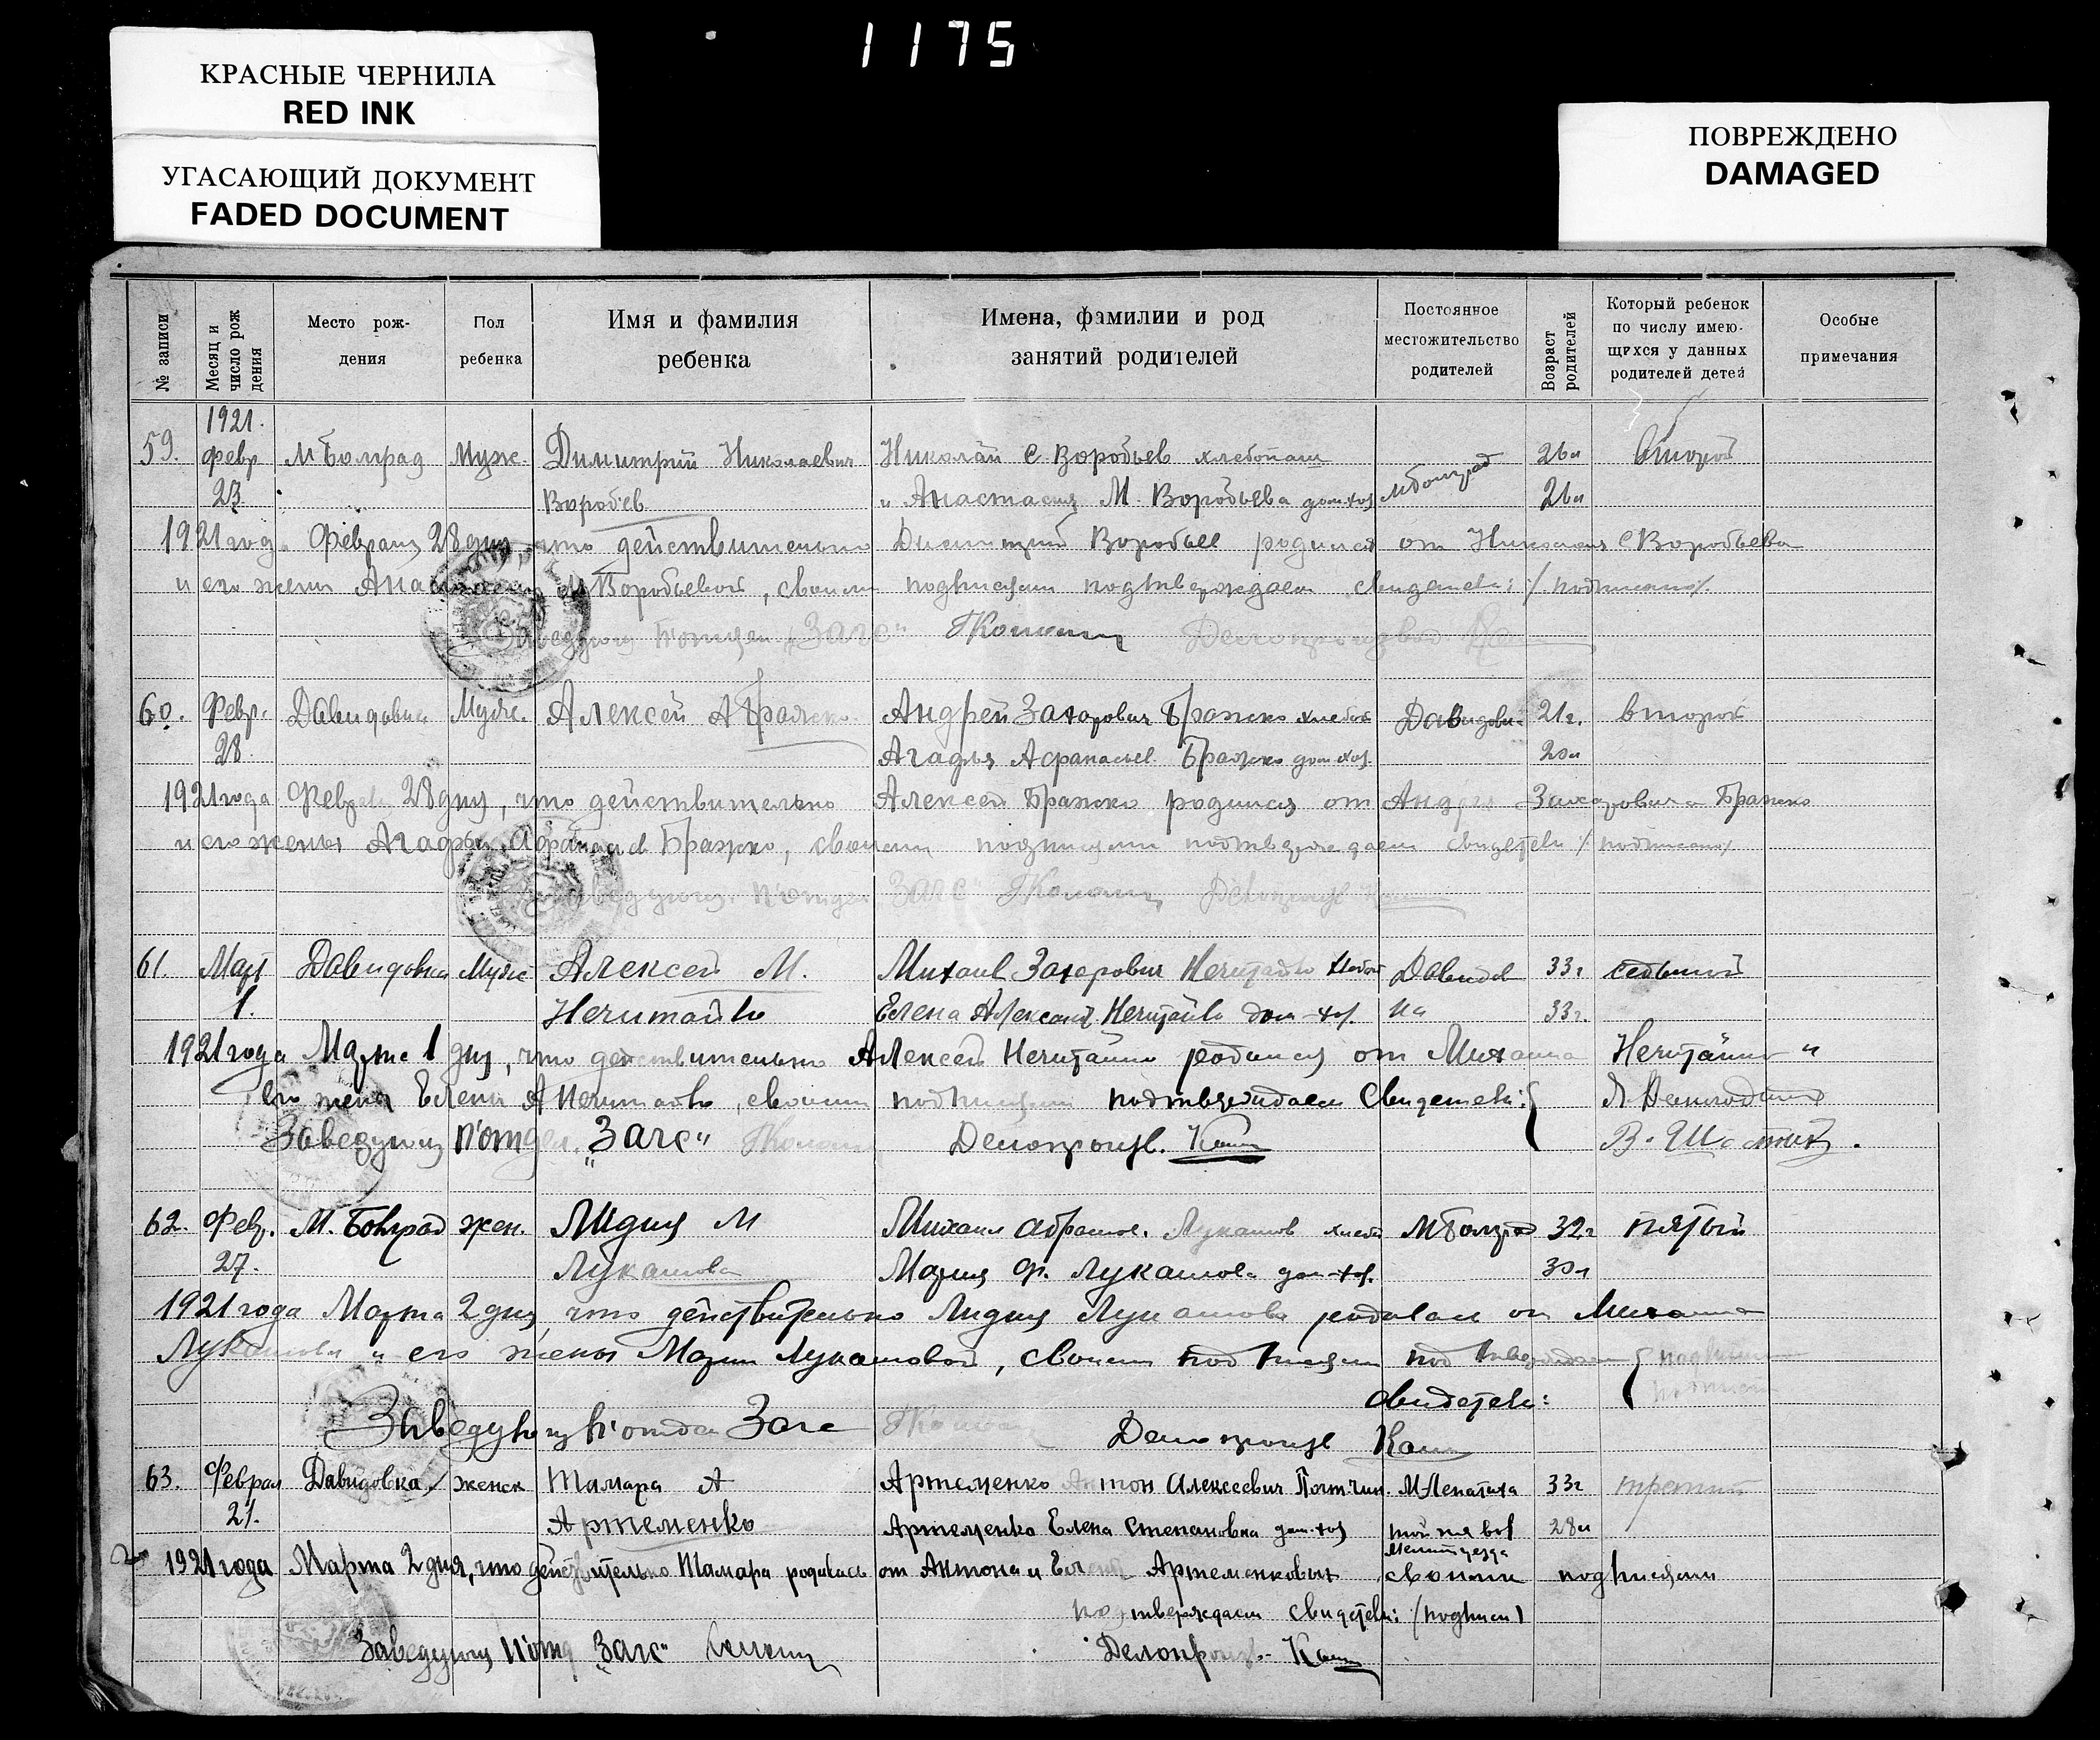 1175
КРАСНЫЕ ЧЕРНИЛА
RED INK
УГАСАЮЩИЙ ДОКУМЕНТ
FADED DOCUMENT
ПОВРЕЖДЕНО
DAMAGED
№ записи
Месяц и число рождения
Место рож-
дения
Пол
ребенка
Имя и фамилия
ребенка
Имена, фамилии и род
занятий родителей
Постоянное
местожительство
родителей
Возраст
родителей
Который ребенок
по числу имею-
щихся у данных
родителей детей
Особые
примечания
1921.
59. февр М Болград Муж. Димитрий Николаевич Николай С. Воробьев хлебопаш 26 л Второй
23. Воробьев " Анастасия М. Воробьева дом-хоз М Болград 26 л
1921 года Февраля 28 дня, что действительно Димитрий Воробьев родился от Николая С Воробьева
и его жены М Воробьевой, своими подписями подтверждаем свидетели:
Заведующ п'отдел „Загс"
60. Февр. Давидовка Муж. Алексей А Бражко Андрей Захарович Бражко хлебоп Давидовк 21 г. второй
28. Агафья Афанасьев. Бражко дом хоз. 20 л
1921 года Февраля 28 дня, что действительно Алексей Бражко родился от Андрея Захаровича Бражко
и его жены Агафьи Афанасьев Бражко, своими подписями подтверждаем свидетели
ЗАГС
61. Март Давидовка Муж Алексей М. Михаил Захарович Нечитайло хлебоп Давидов 33 г седьмой
1. Нечитайло Елена Александ. Нечитайло дом-хоз. ка 33 г.
1921 года Марта 1 дня, что действительно Алексей Нечитайло родился от Михаила Нечитайло и
его жены Елены А Нечитайло, своими подписями подтверждаем Свидетели:
Заведующ п'отдел. „Загс" Делопроизв.
62. Фев. М. Болград жен. Лидия М Михаил Абрамов. Лукашов хлебоп М Болград 32 г пятый
27. Лукашова Мария Ф. Лукашова дом-хоз. 30 л
1921 года Марта 2 дня, что действительно Лидия Лукашова родилась от Михаила
Лукашова и его жены Марии Лукашовой, своими подписями подтверждаем
свидетели:
Заведующ п'отдел Загс Делопроизв
63. Феврал Давидовка женск Тамара А Артеменко Антон Алексеевич М-Лепатиха 33 г третий
21. Артеменко Артеменко Елена Степановна дом-хоз 28 л
Мелит уезда
1921 года Марта 2 дня, что действительно Тамара родилась от Антона и Елены Артеменковых своими подписями
подтверждаем свидетели:
Заведующ п'отд „Загс" Делопроизв.